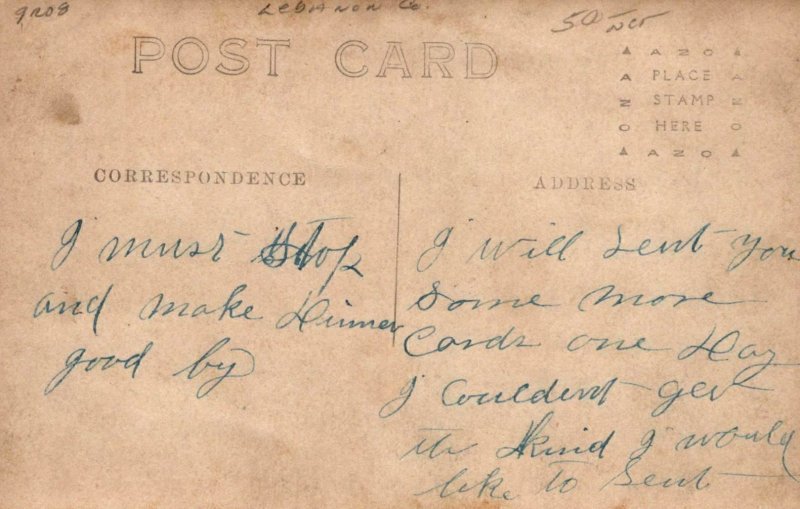 9208
LEBANON Co.
50
POST CARD
▲ AZO ▲
A PLACE A
N STAMP N
O HERE O
▲ AZO ▲
CORRESPONDENCE
ADDRESS
I must Stop
and make Dinner
good by
I will Sent you
Some more
Cards one Day
I Couldent get
the kind I would
like to Sent